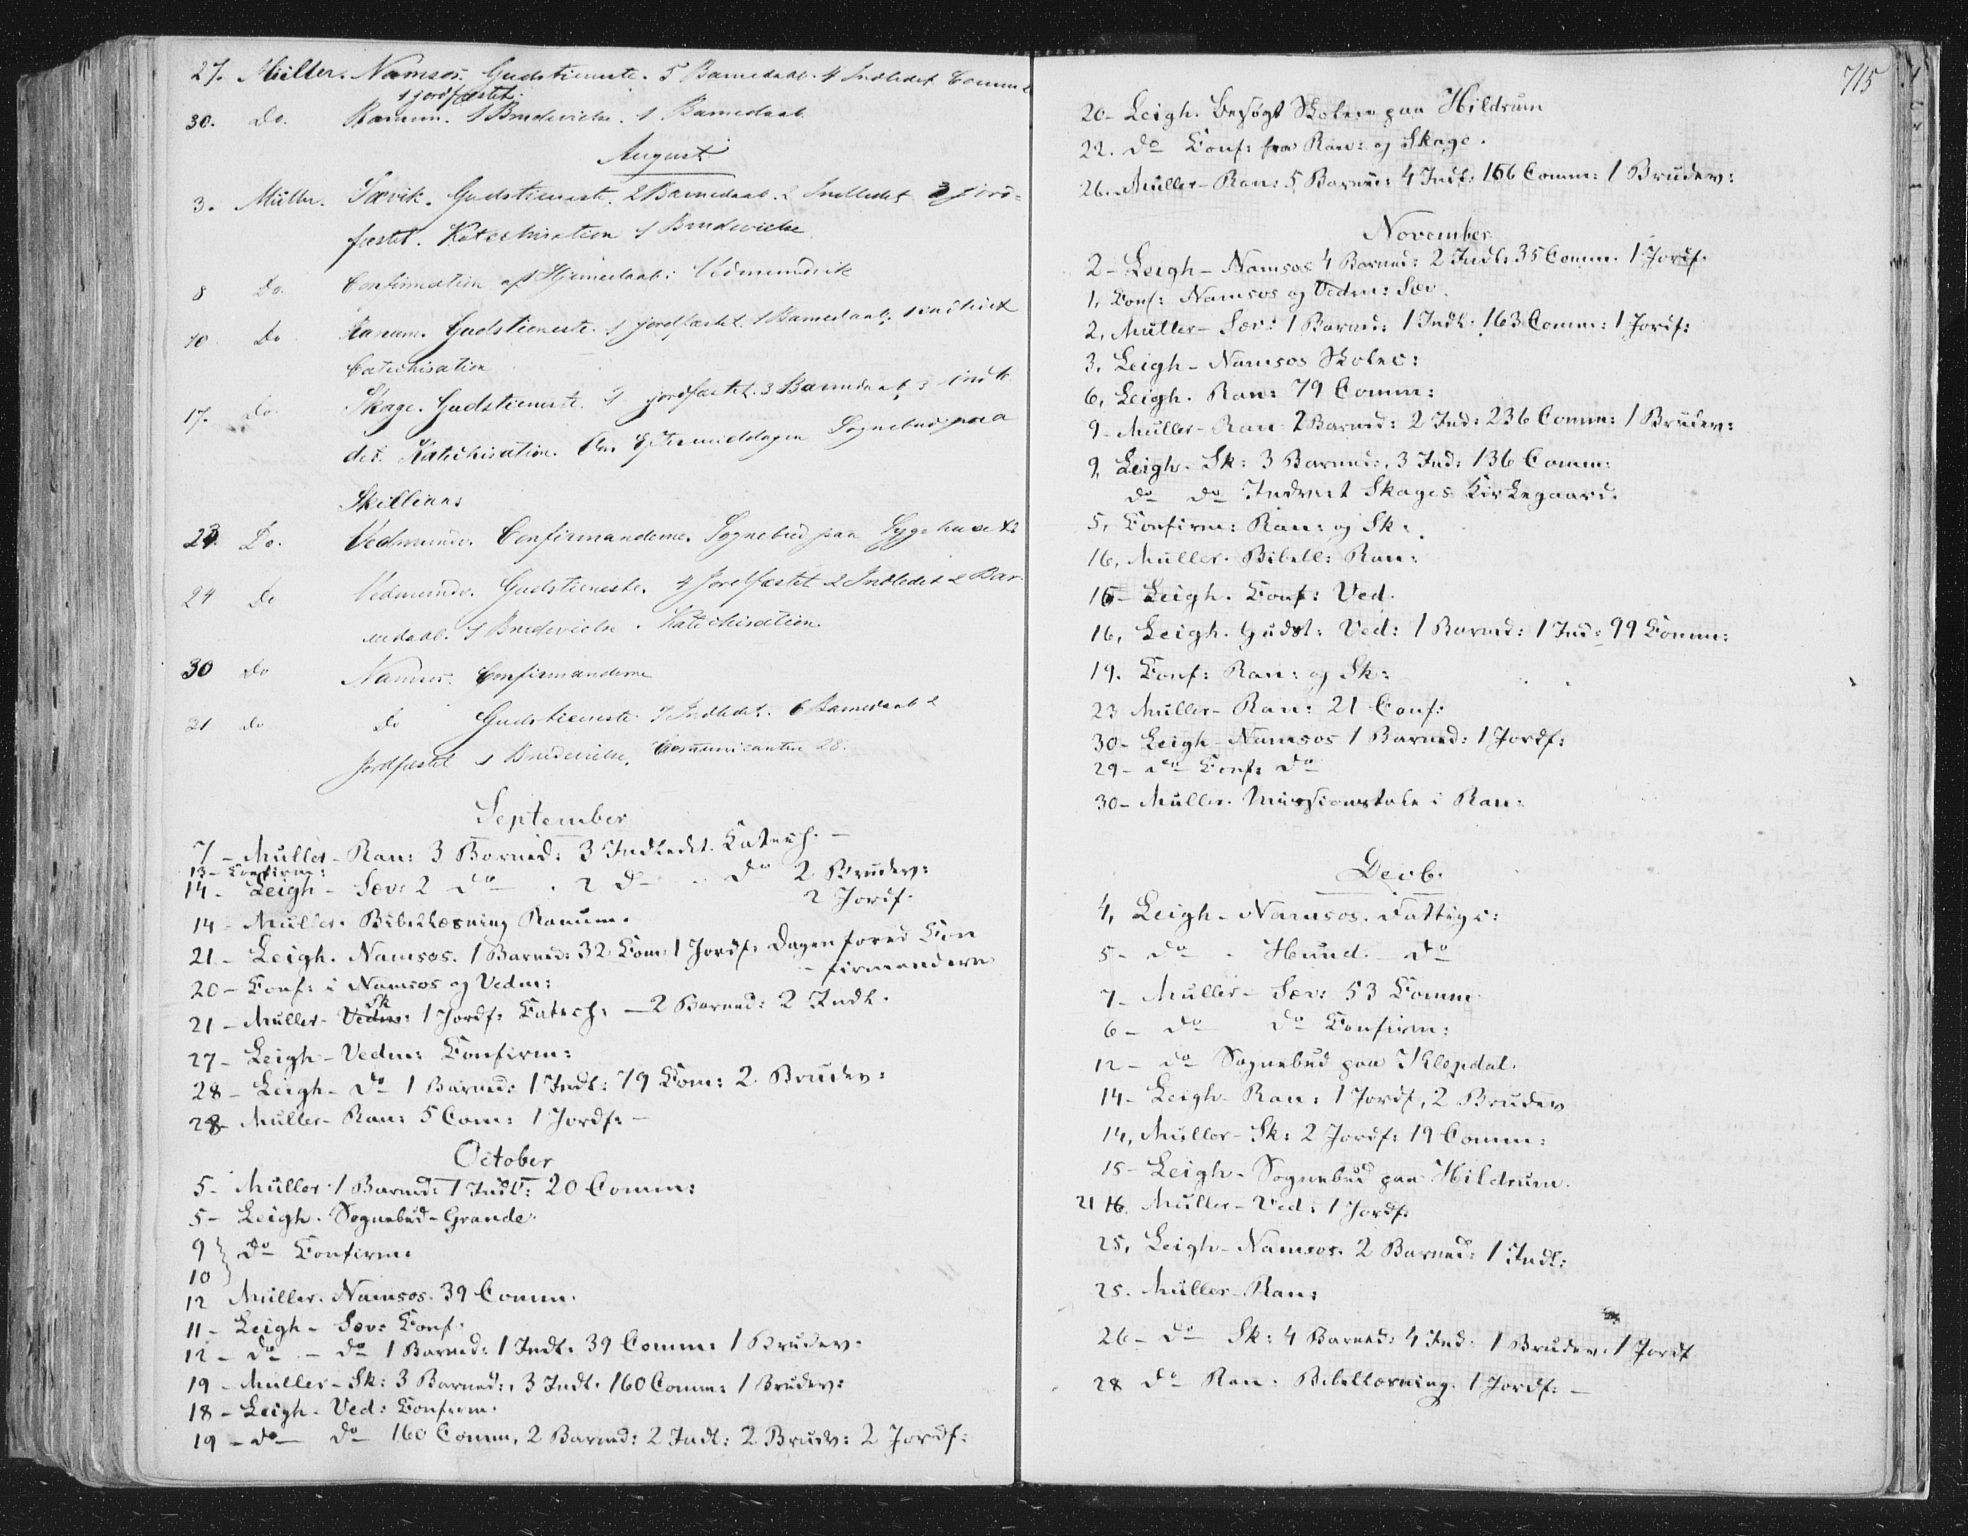 27. Müller. Namsos. Gudstieneste. 5 Barnedaab. 4 Indledet Commu
1 jordfæstet.
30. Do. Ranum. 1 Brudevielse. 1 Barnedaab.
August
3. Müller. Sævik. Gudstieneste. 2 Barnedaab. 2 Indledet 3 jord=
fæstet. Katechisation 1 Brudevielse
8 Do. Confirmation af Hjemedaab: Vedmundvik
10. Do Ranum. Gudstieneste. 1 jordfæstet. 1 Barnedaab. 1 indledt
Catechisation
17. Do. Skage. Gudstieneste. 1 jordfæstet. 3 Barnedaab 3 indle
det. Katechisation. Om Eftermiddagen Sognebud paa
Skilliaas
23. Do. Vedmundv. Confirmanderne. Sognebud paa
24 Do Vedmundv. Gudstieneste. 4 Jordfæstet 2 Indledet 2 Bar
nedaab. 1 Brudevielse. Katechisation.
30 Do Namsos. Confirmanderne
31 do do Gudstieneste 7 Indledet. 6 Barnedaab 2
Jordfæstet 1 Brudevielse. Communicanter 28.
September
7 – Müller – Ran: 3 Barned: 3 Indledt. Catech. –
13 – Confirm:
14 – Leigh – Sæv: 2 do – . 2 do – . do 2 Brudev:
2 Jordf.
14 – Müller. Bibellæsning Ranum.
21 – Leigh. Namsos. 1 Barned: 32 Com: 1 Jordf: Dagen forud Con
firmandern
20 – Conf: i Namsos og Vedm:
Sk
21 – Müller – Vedm: 1 Jordf: Catech: – 2 Barned: 2 Indl.
27 – Leigh – Vedm: Confirm:
28 – Leigh – do 1 Barned: 1 Indl: 79 Com: 2 Brudev:
28 – Müller – Ran: 5 Com: 1 Jordf: –
October
5 – Müller 1 Barned: 1 Indl: 20 Comm:
5 – Leigh. Sognebud – Grande.
9 } do Confirm:
10
12 Müller. Namsos. 39 Comm.
11 – Leigh – Sæv: Conf.
12 – do – do 1 Barned: 1 Indl. 39 Comm: 1 Brudev.
19 – Müller – Sk: 3 Barned:, 3 Indl. 160 Comm: 1 Brudev:
18 – Leigh – Ved: Confirm.
19 – do – do 160 Comm, 2 Barned: 2 Indl: 2 Brudv: 2 Jordf:
715
20 – Leigh. Besøgt Skolen paa Hildrum
22. do Conf: fra Ran: og Skage.
26. Müller – Ran: 5 Barned: 4 Indl: 166 Comm: 1 Brudev:
November
2 – Leigh – Namsos 4 Barned: 2 Indl: 35 Comm. 1 Jordf.
1, Conf: Namsos og Vedm: Sæv.
2, Müller – Sæv: 1 Barned: 1 Indl: 163 Comm: 1 Jordf:
3, Leigh – Namsos Skoles:
6, Leigh. Ran: 79 Comm:
9 – Müller – Ran 2 Barned: 2 Ind: 236 Comm: 1 Brudev:
9, Leigh. Sk: 3 Barned:, 3 Ind: 136 Comm:
do do Indviet Skages Kirkegaard.
5, Confirm: Ran: og Sk:
16, Müller. Bibell: Ran:
15 – Leigh. Conf: Ved.
16, Leigh. Gudst: Ved: 1 Barned: 1 Ind: 99 Comm:
19. Conf: Ran: og Sk:
23 Müller – Ran: 21 Conf:
30 – Leigh – Namsos 1 Barned: 1 Jordf:
29 – do Conf: do
30 – Müller. Missionstale i Ran:
Decb.
4, Leigh – Namsos. Fattigc:
5 – do – Hund. do
7 – Müller – Sæv: 53 Comm
6 – do do Confirm:
12 – do Sognebud paa Klepdal.
14 – Leigh – Ran: 1 Jordf, 2 Brudev
14, Müller – Sk: 2 Jordf: 19 Comm:
15 – Leigh – Sognebud paa Hildrum.
21 16. Müller – Ved: 1 Jordf:
25, Leigh – Namsos. 2 Barned: 1 Indl:
25. Müller – Ran:
26 – do Sk: 4 Barned: 4 Ind. 1 Brudev. 1 Jordf
28 do Ran. Bibellæsning. 1 Jordf: –